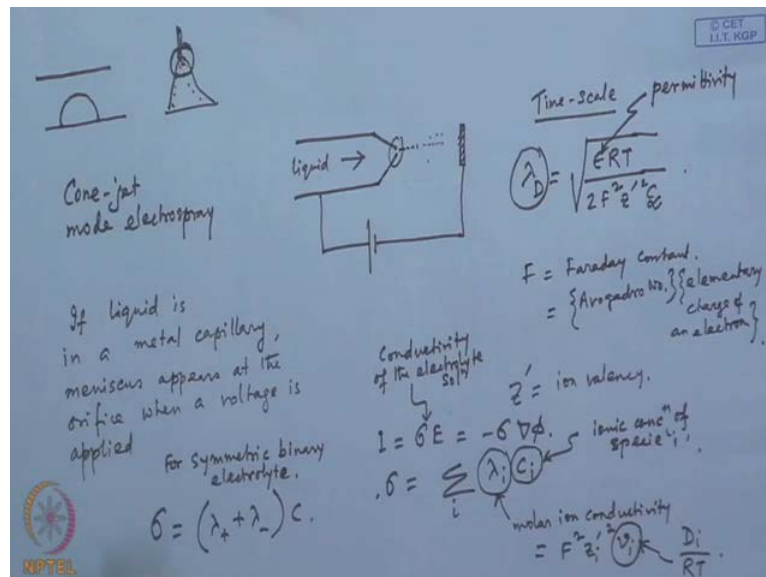 © CET
I.I.T. KGP
Cone-jet
mode electrospray
liquid →
Time-scale
permittivity
λ_D = √(εRT / 2F²z'²
F = Faraday Constant.
= {Avogadro No.} {elementary
charge of
an electron}.
z' = ion valency.
If liquid is
in a metal capillary,
meniscus appears at the
orifice when a voltage is
applied
Conductivity
of the electrolyte
Solⁿ
I = σE = -σ∇φ.
σ = Σ_i λ_i c_i
ionic concⁿ of
specie 'i'.
molar ion conductivity
= F² z_i'² ν_i
D_i / RT.
For symmetric binary
electrolyte.
σ = (λ₊ + λ₋) C.
NPTEL